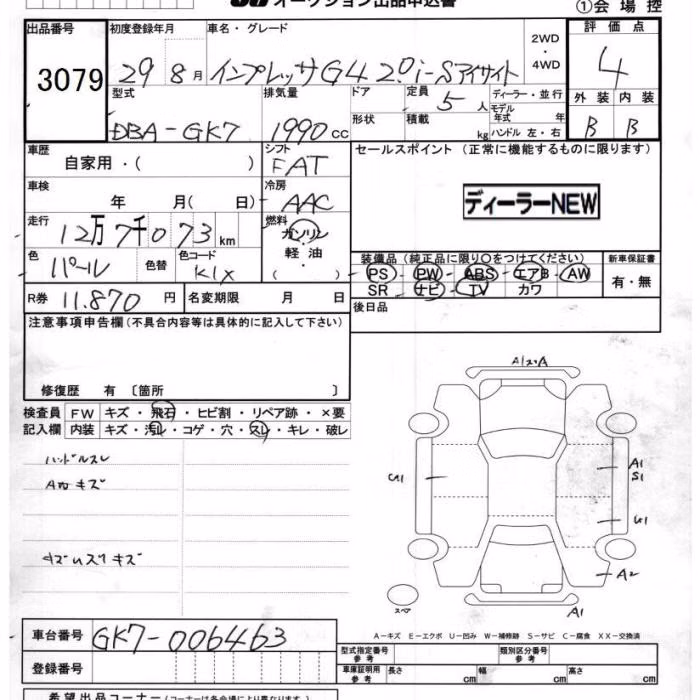 オークション出品申込書 ①会場控
出品番号 初度登録年月 車名・グレード 2WD・4WD 評価点
3079 29 8月 インプレッサG4 2.0i-Sアイサイト 4
型式 排気量 ドア 定員 ディーラー・並行 外装 内装
DBA-GK7 1990cc 形状 5人 積載 kg モデル年式 年 ハンドル 左・右 B B
車歴 シフト セールスポイント (正常に機能するものに限ります)
自家用・( ) FAT
車検 冷房
年 月( 日) AAC ディーラーNEW
走行 燃料
12万7千073km ガソリン
色 色替 色コード 軽油 装備品 (純正品に限り○をつけてください) 新車保証書
パール K1X ( ) PS PW ABS エアB AW 有・無
SR ナビ TV カワ
R券 11.870円 名変期限 月 日 後日品
注意事項申告欄 (不具合内容等は具体的に記入して下さい)
修復歴 有 〔箇所 〕
検査員 FW キズ・飛石・ヒビ割・リペア跡・×要
記入欄 内装 キズ・汚レ・コゲ・穴・スレ・キレ・破レ
ハンドルスレ
キズ
A1
S1
A2
A1
スペア
A-キズ E-エクボ U-凹み W-補修跡 S-サビ C-腐食 XX-交換済
車台番号 GK7-006463
型式指定番号 参考 類別区分番号 参考
登録番号 車庫証明用 参考 長さ cm 幅 cm 高さ cm
希望出品コーナー (コーナーは各会場により異なります)